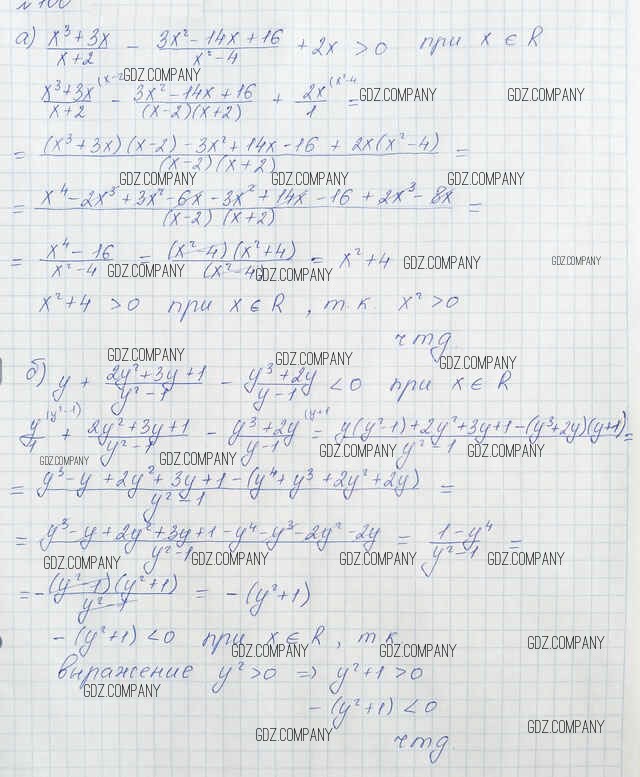 №100
а) (x³+3x)/(x+2) - (3x²-14x+16)/(x²-4) + 2x > 0 при x ∈ R
GDZ.COMPANY
(x³+3x)/(x+2) (x-2 - (3x²-14x+16)/((x-2)(x+2)) + 2x/1 (x²-4 = GDZ.COMPANY GDZ.COMPANY
= ((x³+3x)(x-2) - 3x²+14x-16 + 2x(x²-4))/((x-2)(x+2)) =
GDZ.COMPANY GDZ.COMPANY GDZ.COMPANY
= (x⁴-2x³+3x²-6x-3x²+14x-16+2x³-8x)/((x-2)(x+2)) =
= (x⁴-16)/(x²-4) = ((x²-4)(x²+4))/(x²-4) = x²+4 GDZ.COMPANY GDZ.COMPANY
GDZ.COMPANY GDZ.COMPANY
x²+4 > 0 при x ∈ R, т.к. x² > 0
чтд
GDZ.COMPANY GDZ.COMPANY GDZ.COMPANY
б) y + (2y²+3y+1)/(y²-1) - (y³+2y)/(y-1) < 0 при x ∈ R
y/1 (y²-1) + (2y²+3y+1)/(y²-1) - (y³+2y)/(y-1) (y+1 = (y(y²-1)+2y²+3y+1-(y³+2y)(y+1))/(y²-1) =
GDZ.COMPANY GDZ.COMPANY GDZ.COMPANY GDZ.COMPANY
= (y³-y+2y²+3y+1-(y⁴+y³+2y²+2y))/(y²-1) =
= (y³-y+2y²+3y+1-y⁴-y³-2y²-2y)/(y²-1) = (1-y⁴)/(y²-1) =
GDZ.COMPANY GDZ.COMPANY GDZ.COMPANY GDZ.COMPANY
= -((y²-1)(y²+1))/(y²-1) = -(y²+1)
-(y²+1) < 0 при x ∈ R, т.к.
GDZ.COMPANY GDZ.COMPANY GDZ.COMPANY
выражение y² > 0 ⇒ y²+1 > 0
GDZ.COMPANY
-(y²+1) < 0
GDZ.COMPANY GDZ.COMPANY
чтд.